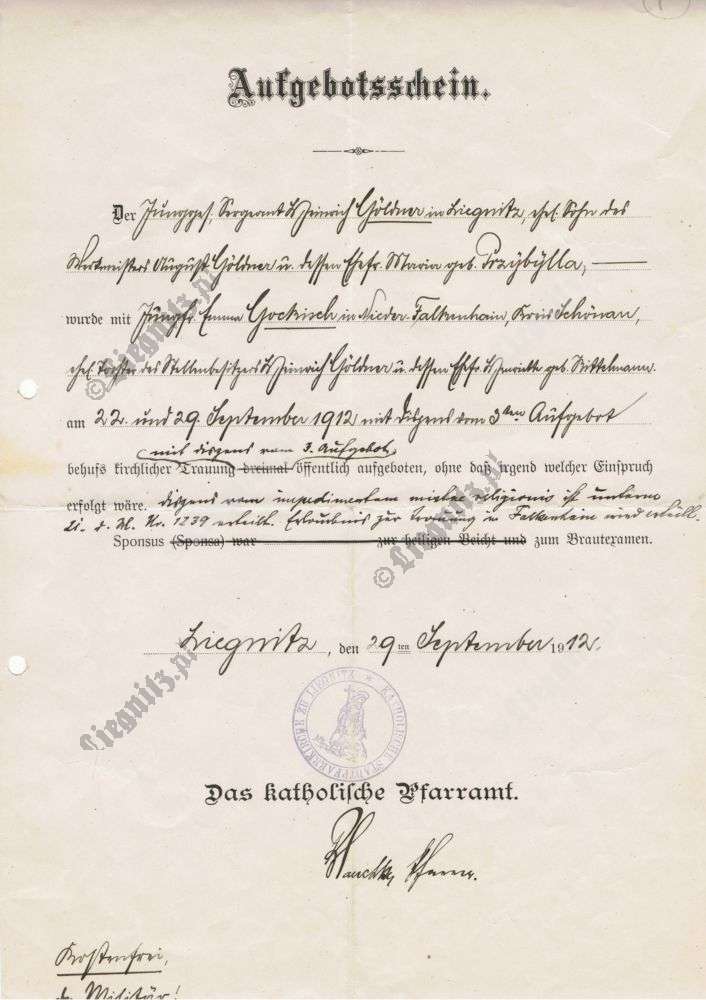 Aufgebotsschein.
Der Junggges. Sergeant Heinrich Göldner in Liegnitz, ehel. Sohn des
Werkmeisters August Göldner u. dessen Ehefr. Maria geb. Przybylla,
wurde mit Jungfr. Emma Gockisch in Nieder-Falkenhain, Kreis Schönau,
ehel. Tochter des Stellenbesitzers Heinrich Göldner u. dessen Ehefr. Henriette geb. Mittelmann
am 22. und 29. September 1912 mit Dispens vom 3ten Aufgebot
mit dispens vom 3. Aufgebot
behufs kirchlicher Trauung dreimal öffentlich aufgeboten, ohne daß irgend welcher Einspruch
erfolgt wäre. Dispens vom impedimentum mixtae religionis ist unterm
Nr. 1239 erteilt. Erlaubnis zur Trauung in Falkenhain wird erteilt.
Sponsus (Sponsa) war zur heiligen Beicht und zum Brautexamen.
Liegnitz, den 29ten September 1912.
KATHOLISCHE STADTPFARRKIRCHE ZU LIEGNITZ
Das katholische Pfarramt.
Pfarrer.
Kostenfrei,
da Militär!
©Liegnitz.pl
©Liegnitz.pl
Liegnitz.pl